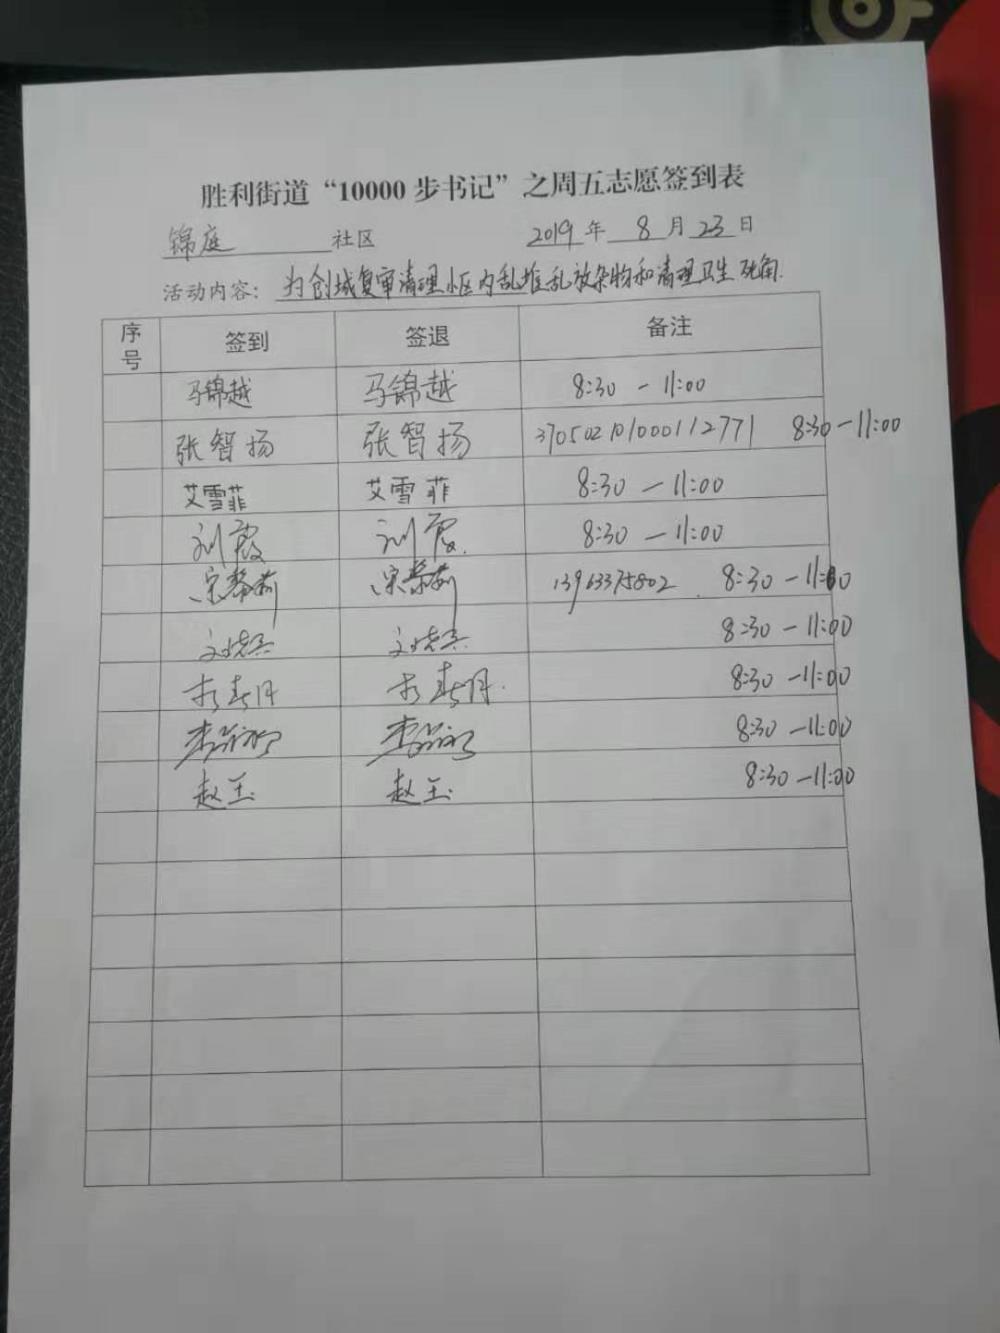 胜利街道“10000 步书记”之周五志愿签到表
锦庭 社区 2019 年 8 月 23 日
活动内容: 为创城复审清理小区内乱堆乱放杂物和清理卫生死角.
序号 签到 签退 备注
马锦越 马锦越 8:30 - 11:00
张智扬 张智扬 370502101000112771 8:30-11:00
艾雪菲 艾雪菲 8:30 - 11:00
刘霞 刘霞. 8:30 - 11:00
宋 莉 宋 莉 13963375802 8:30-11:00
8:30-11:00
8:30-11:00
李 李 8:30-11:00
赵玉 赵玉 8:30-11:00